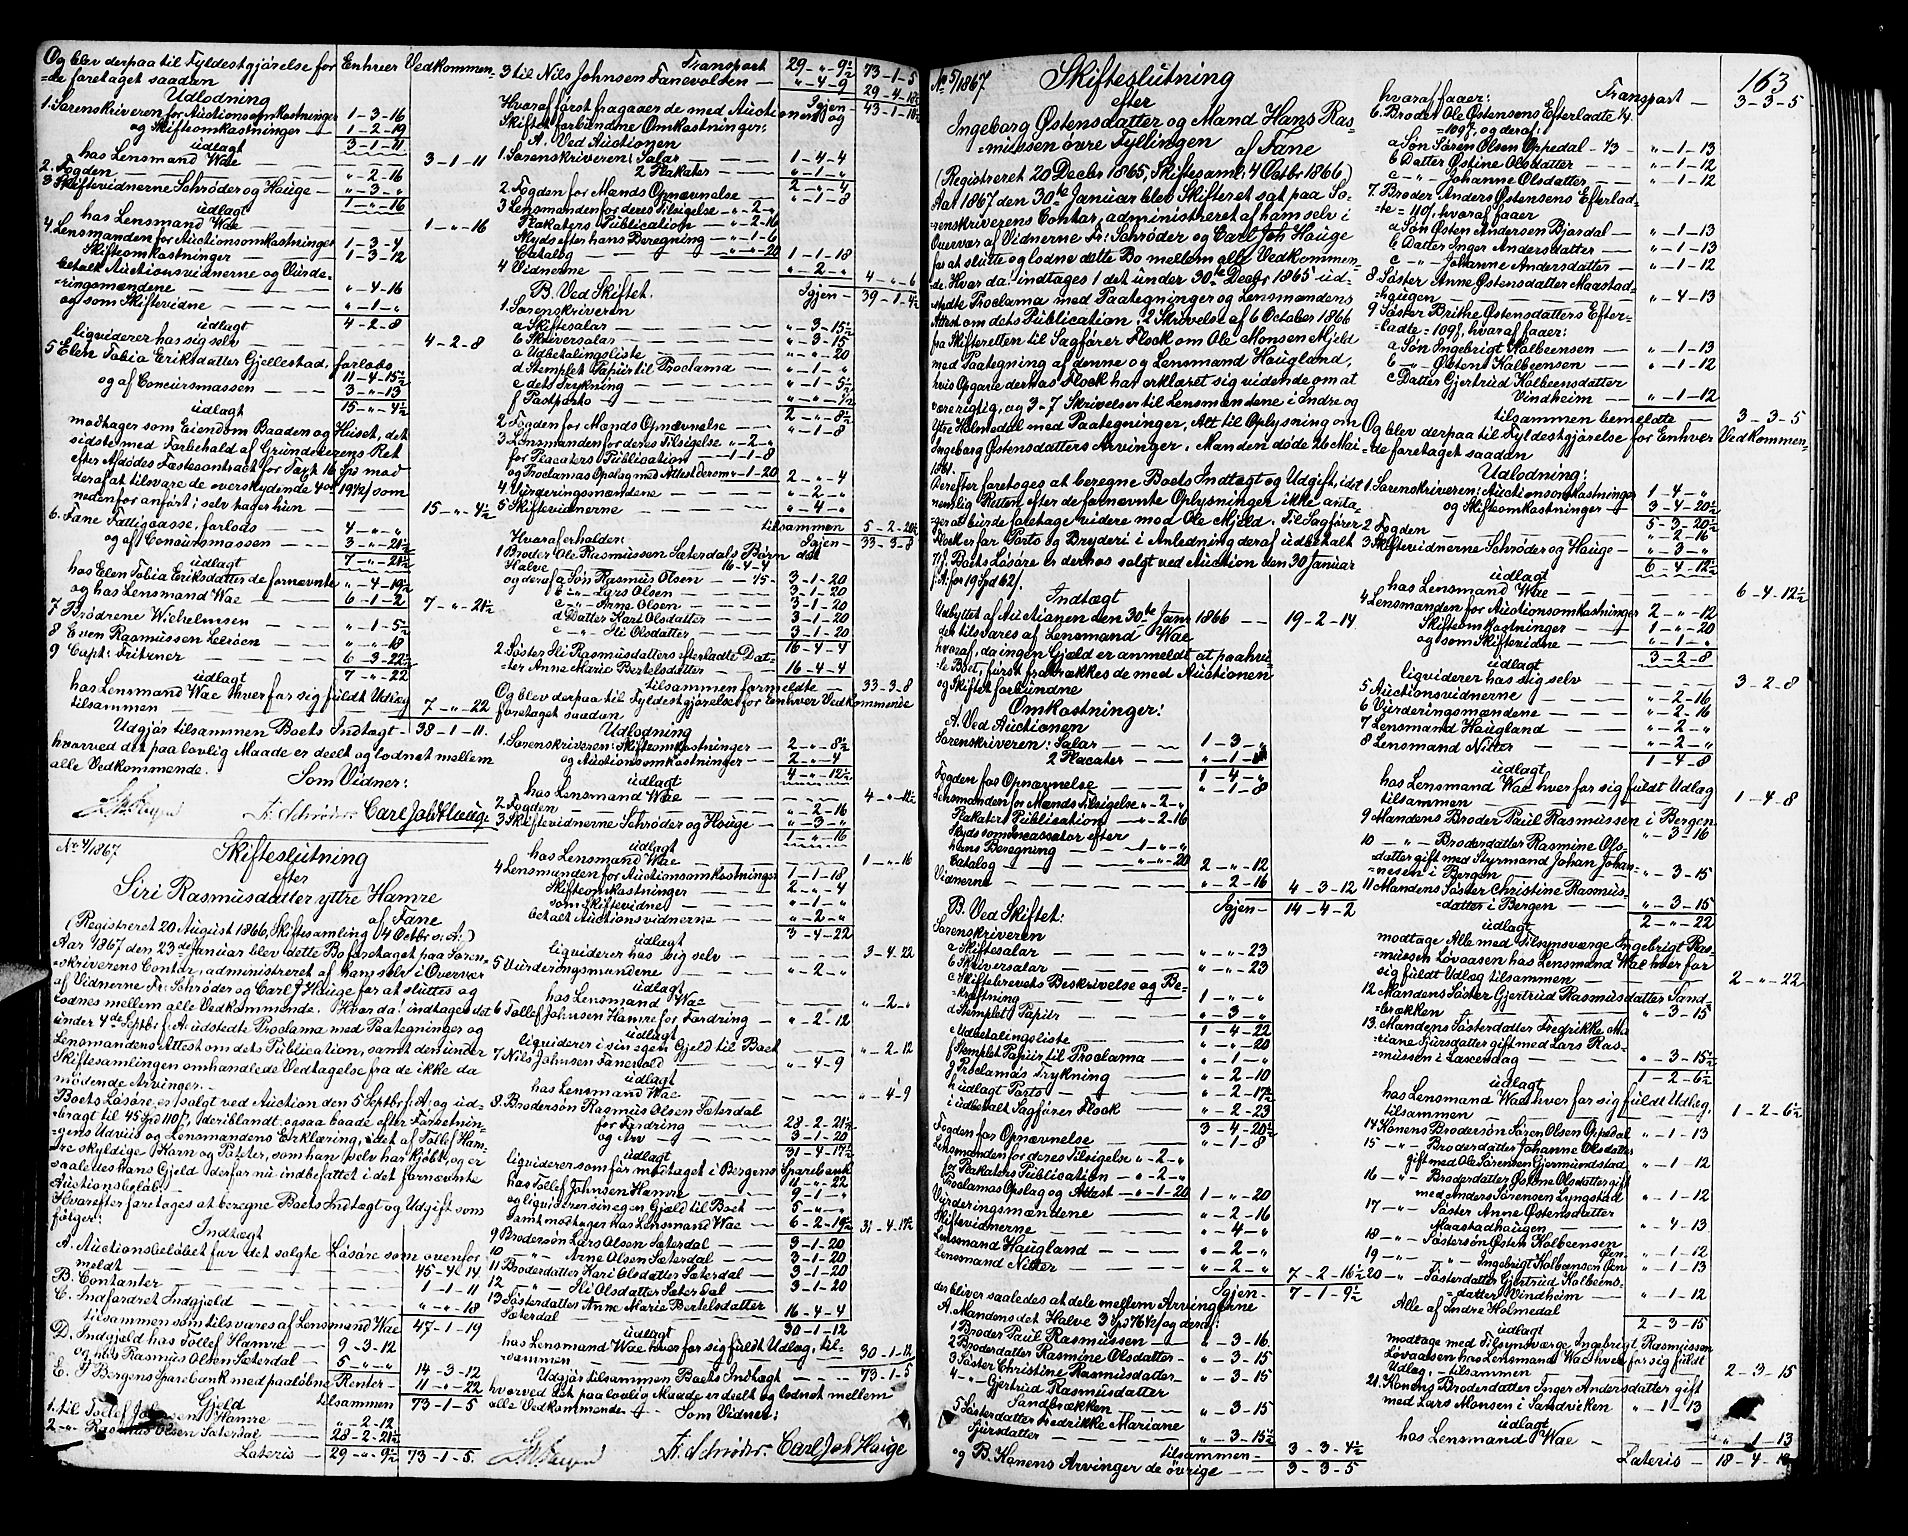 Og blev derpaa til Fyldestgjørelse for Enhver Vedkommen-
-de foretaget saadan
Udlodning
1. Sorenskriveren for Auctionsomkostninger 1-3-16
og Skifteomkostninger 1-2-19
udlagt 3-1-11
hos Lensmand Wae 3-1-11
2. Fogden "-2-16
3 Skiftevidnerne Schrøder og Hauge "-3-"
udlagt 1-"-16
hos Lensmand Wae 1-"-16
4. Lensmanden for Auctionsomkostninger 1-3-4
Skifteomkostninger 1-3-12
betalt Auctionsvidnerne og Vurde-
-ringsmændene "-4-16
og som Skiftevidne "-1-"
udlagt 4-2-8
liqviderer hos sig selv 4-2-8
5 Elen Tobia Eriksdatter Gjellestad, forlods 11-4-15½
og af Concursmassen 3-"-13
udlagt 15-"-4½
modtager som Eiendom Baaden og Huset, det
sidste med Forbehold af Grundeierens Ret
efter Afdødes Fæstecontract for Taxt 16 Spd mod
deraf at tilsvare de overskydende 4 Ort 19½ s som
nedenfor anført; selv tager hun 15-"-4½
6. Fane Fattigcasse, forlods 4-"-"
og af Concursmassen 3-"-21½
udlagt 7-"-21½
hos Elen Tobia Eriksdatter de fornævnte "-4-19½
og hos Lensmand Wae 6-1-2 7-"-21½
7 Brødrene Wichelmsen "-1-5½
8 Even Rasmussen Leeröen "-"-18
9 Capt: Fritzner 6-3-22½
udlagt 7-"-22
hos Lensmand Wae hver for sig fuldt Udlæg
tilsammen 7-"-22
Udgjør tilsammen Boets Indtægt 38-1-11.
hvorved det paa lovlig Maade er deelt og lodnet mellem
alle Vedkommende.
Som Vidner:
Fr. Schrøder. Carl Joh Hauge
No 4/1867
Skifteslutning
efter
Siri Rasmusdatter yttre Hamre
af Fane
(Registreret 20 August 1866, Skiftesamling 4 Octbr s: A:)
Aar 1867 den 23de Januar blev dette Bo foretaget paa Soren-
-skriverens Contor, administreret af ham selv i Overvær
af Vidnerne Fr: Schrøder og Carl J Hauge for at sluttes og
lodnes mellem alle Vedkommende. Hvor da: indtages det
under 4de Septbr f: A: udstedte Proclama med Paategninger og
Lensmandens Attest om dets Publication, samt den under
Skiftesamlingen omhandlede Vedtagelse fra de ikke da
mødende Arvinger.
Boets Løsøre er solgt ved Auction den 5 Septbr f: A: og ud-
-bragt til 45 Spd 110 s, deriblandt ogsaa baade efter Forsetnin-
-gens Udviis og Lensmandens Erklæring, i det af Tollef Ham-
-re skyldige Korn og Poteter, som han selv har kjøbt, og er
saaledes hans Gjeld derfor nu indbefattet i det fornævnte
Auctionsbeløb.
Hvorefter foretages at beregne Boets Indtægt og Udgift som
følger:
Indtægt
A. Auctionsbeløbet for det solgte Løsøre som ovenfor
meldt 45-4-14
B. Contanter 1-1-11
C. Indfordret Indgjæld "-"-18
tilsammen som tilsvares af Lensmand Wae 47-1-19
D. Indgjæld hos Tollef Hamre 9-3-12
og hos Rasmus Olsen Sæterdal 5-"-" 14-3-12
E. I Bergens Sparebank med paaløbne Renter 11-"-22
Gjeld tilsammen 73-1-5
1. til Tollef Johnsen Hamre "-2-12
2 -"- Rasmus Olsen Sæterdal 28-2-21½
Lateris 29-"-9½ 73-1-5.
Transport 29-"-9½ 73-1-5
3 til Nils Johnsen Fanevolden "-4-9 29-4-18½
Igjen 43-1-10½
Hvoraf først fragaaer de med Auctionen og
Skiftet forbundne Omkostninger:
A. Ved Auctionen
1. Sorenskriveren: Salar 1-4-4
2 Plakater "-1-"
2-"-4
2 Fogden for Mands Opnævnelse "-1-8
3 Lensmanden for deres Tilsigelse "-2-"
Plakaters Publication "-2-16
Skyds efter hans Beregning "-1-6
Catalog "-"-20 1-1-18
4 Vidnerne "-2-" 4-"-6
B. Ved Skiftet. Igjen 39-1-4½
1. Sorenskriveren
a Skiftesalar "-3-15½
b Skriversalar "-3-15
c Udbetalingsliste "-"-20
d Stemplet Papiir til Proclama "-1-"
e dets Trykning "-1-5½
f Postporto "-"-9½
2-"-8½
2 Fogden for Mands Opnævnelse "-1-8
3 Lensmanden for deres Tilsigelse "-2-"
for Placaters Publication 1-1-8
og Proclamas Opslag med Attest derom "-1-20 2-"-4
4. Vurderingsmændene "-2-"
5 Skiftevidnerne "-4-"
tilsammen 5-2-20½
Hvoraf erholder: Igjen 33-3-8
1 Broder Ole Rasmussen Sæterdals Børn det
Halve 16-4-4
og deraf a Søn Rasmus Olsen 3-1-20
b -"- Lars Olsen 3-1-20
c -"- Arne Olsen 3-1-20
d Datter Kari Olsdatter 3-1-20
e -"- Sli Olsdatter 3-1-20
16-4-4
2 Søster Sli Rasmusdatters efterladte Dat-
-ter Anne Marie Bertelsdatter 16-4-4
tilsammen formeldte 33-3-8
Og blev derpaa til Fyldestgjørelse for Enhver Vedkommende
foretaget saadan
Udlodning
1. Sorenskriveren: Skifteomkostninger 2-"-8½
og Auctionsomkostninger 2-"-4
udlagt 4-"-12½
hos Lensmand Wae 4-"-12½
2. Fogden "-2-16
3 Skiftevidnerne Schrøder og Hauge "-3-"
udlagt 1-"-16
hos Lensmand Wae 1-"-16
4 Lensmanden for Auctionsomkostninger 1-1-18
Skifteomkostninger 2-"-4
som Skiftevidne "-1-"
betalt Auctionsvidnerne "-2-"
udlagt 3-4-22
liqviderer hos sig selv 3-4-22
5 Vurderingsmændene "-2-"
udlagt
hos Lensmand Wae "-2-"
6 Tollef Johnsen Hamre for Fordring "-2-12
udlagt
liqviderer i sin egen Gjeld til Boet "-2-12
7 Nils Johnsen Fanevold "-4-9
udlagt
hos Lensmand Wae "-4-9
8. Brodersøn Rasmus Olsen Sæterdal
for Fordring 28-2-21½
og Arv 3-1-20
udlagt 31-4-17½
liqviderer som før modtaget i Bergens Sparebank 11-"-22
hos Tollef Johnsen Hamre 9-1-"
og liqviderer sin egen Gjeld til Boet 5-"-"
samt modtager hos Lensmand Wae 6-2-19½ 31-4-17½
9 Brodersøn Lars Olsen Sæterdal 3-1-20
10 -"- Arne Olsen Sæterdal 3-1-20
11 Broderdatter Kari Olsdatter Sæterdal 3-1-20
12 -"- Sli Olsdatter Sæterdal 3-1-20
13 Søsterdatter Anne Marie Bertelsdatter
Sæterdal 16-4-4
udlagt 30-1-12
hos Lensmand Wae hver for sig fuldt Udlæg, til-
-sammen 30-1-12
Udgjør tilsammen Boets Indtægt 73-1-5
hvorved det paa lovlig Maade er deelt og lodnet mellem
alle Vedkommende
Som Vidner:
Fr. Schrøder. Carl Joh Hauge
163
No 5/1867
Skifteslutning
efter
Ingeborg Østensdatter og Mand Hans Ras-
-mussen øvre Tyllingen af Fane
(Registreret 20 Decbr 1865; Skiftesaml: 4 Octbr 1866)
Aar 1867 den 30te Januar blev Skifteret sat paa So-
renskriverens Contor, administreret af ham selv i
Overvær af Vidnerne Fr: Schrøder og Carl Joh Hauge
for at slutte og lodne dette Bo mellem alle Vedkommen-
de. Hvor da: indtages 1 det under 30te Decbr 1865 ud-
-stedte Proclama med Paategninger og Lensmandens
Attest om dets Publication; 2 Skrivelse af 6 October 1866
fra Skifteretten til Sagfører Flock om Ole Monsen Mjeld
med Paategning af denne og Lensmand Haugland,
hvis Opgave dernæs Flock har erklæret sig vidende om at
være rigtig, og 3-7 Skrivelser til Lensmændene i Indre og
Ytre Holmedal med Paategninger, Alt til Oplysning om
Ingeborg Østensdatters Arvinger. Manden døde 26 Mai
1861.
Derefter foretoges at beregne Boets Indtægt og Udgift, idet
nemlig Retten efter de fornævnte Oplysninger ikke anta-
ger at burde foretage videre mod Ole Mjeld. Til Sagfører
Flock er for Porto og Bryderi i Anledning deraf udbetalt
71 s. Boets Løsøre er dernæs solgt ved Auction den 30 Januar
f: A: for 19 Spd 62 s.
Indtægt
Udbyttet af Auctionen den 30te Janr 1866 19-2-14
det tilsvares af Lensmand Wae
hvoraf, da ingen Gjeld er anmeldt at paahvi-
-le Boet, først fratrækkes de med Auctionen
og Skiftet forbundne
Omkostninger:
A. Ved Auctionen
Sorenskriveren: Salar 1-3-"
2 Placater "-1-"
1-4-"
Fogden for Opnævnelse "-1-8
Lensmanden for Mænds Tilsigelse "-2-"
Plakaters Publication "-2-16
Skyds som incassator efter
hans Beregning 1-"-"
Catalog "-"-20 2-"-12
Vidnerne "-2-16 4-3-12
B. Ved Skiftet: Igjen 14-4-2
Sorenskriveren
a Skiftesalar "-"-23
b Skriversalar "-"-23
c Skiftebrevets Beskrivelse og Be-
-kræftning 1-"-"
d Stemplet Papiir "-3-"
1-4-22
e Udbetalingsliste "-"-20
f Stemplet Papiir til Proclama "-1-"
g Proclamas Trykning "-2-10
h udlagt Porto "-2-17½
i udbetalt Sagfører Flock "-2-23
3-4-20½
Fogden for Opnævnelse "-1-8
Lensmanden for deres Tilsigelse "-2-"
for Plakaters Publication "-2-"
Proclamas Opslag og Attest "-1-20 1-"-20
Vurderingsmændene "-2-16
Skiftevidnerne "-4-"
Lensmand Haugland "-2-"
Lensmand Nitter "-2-" 7-2-16½
Igjen 7-1-9½
der bliver saaledes at dele mellem Arvingerne
A. Mandens det Halve 3 Spd 76½ s og deraf:
1 Broder Paul Rasmussen "-3-16
2 Broderdatter Rasmine Olsdatter "-3-15
3 Søster Christine Rasmusdatter "-3-15
4 -"- Gjertrud Rasmusdatter
Sandbrækken "-3-15
5 Søsterdatter Fredrikke Mariane
Sjursdatter "-3-15½
tilsammen 3-3-4½
og B. Konens Arvinger de øvrige 3-3-5
Transport 3-3-5
hvoraf faaer:
6. Broder Ole Østensens Efterladte ¼
= 109 s, og deraf:
a Søn Søren Olsen Oppedal "-1-13
b Datter Østine Olsdatter "-1-12
c -"- Johanne Olsdatter "-1-12
7 Broder Anders Østensens Efterlad-
te = 110 s, hvoraf faaer
a Søn Østen Andersen Bjordal "-1-13
b Datter Inger Andersdatter "-1-13
c -"- Johanne Andersdatter "-1-12
8 Søster Anne Østensdatter Maastad-
-haugen "-4-13
9 Søster Brithe Østensdatters Efter-
-ladte = 109 s, hvoraf faaer:
a Søn Ingebrigt Kolbeensen "-1-13
b -"- Østen Kolbeensen "-1-12
c Datter Gjertrud Kolbeensdatter
Vindheim "-1-12
tilsammen bemeldte 3-3-5
Og blev derpaa til Fyldestgjørelse for Enhver Vedkommen-
-de foretaget saadan
Udlodning:
1. Sorenskriveren: Auctionsomkostninger 1-4-"
og Skifteomkostninger 3-4-20½
5-3-20½
2 Fogden "-2-16
3 Skiftevidnerne Schrøder og Hauge "-3-"
udlagt 6-4-12½
hos Lensmand Wae 6-4-12½
4 Lensmanden for Auctionsomkostninger 2-"-12
Skifteomkostninger 1-"-20
og som Skiftevidne "-1-"
udlagt 3-2-8
liqviderer hos sig selv 3-2-8
5 Auctionsvidnerne "-2-16
6 Vurderingsmændene "-2-16
7 Lensmand Haugland "-2-"
8 Lensmand Nitter "-2-"
udlagt 1-4-8
hos Lensmand Wae hver for sig fuldt Udlæg
tilsammen 1-4-8
9 Mandens Broder Paul Rasmussen i Bergen "-3-16
10 -"- Broderdatter Rasmine Ols-
-datter gift med Styrmand Johan Johan-
-nesen i Bergen "-3-15
11 Mandens Søster Christine Rasmus-
-datter i Bergen "-3-15
udlagt 2-"-22
modtage Alle med Tilsynsværge Ingebrigt Ras-
-mussen Løvaasen hos Lensmand Wae hver for
sig fuldt Udlæg tilsammen 2-"-22
12 Mandens Søster Gjertrud Rasmusdatter Sand-
-brækken "-3-15
13. Mandens Søsterdatter Fredrikke Ma-
-riane Sjursdatter gift med Lars Ras-
-mussen i Laxevaag "-3-15½
udlagt 1-2-6½
hos Lensmand Wae hver for sig fuldt Udlæg,
tilsammen 1-2-6½
14 Konens Brodersøn Søren Olsen Oppedal "-1-13
15 -"- Broderdatter Johanne Olsdatter
gift med Ole Sørensen Gjermundstad "-1-12
16 -"- Broderdatter Østine Olsdatter gift
med Anders Sørensen Lyngstad "-1-12
17 -"- Søster Anne Østensdatter
Maastadhaugen "-4-13
18 -"- Søstersøn Østen Kolbeensen "-1-12
19 -"- Ingebrigt Kolbeensen "-1-13
20 -"- Søsterdatter Gjertrud Kolbeens-
-datter Vindheim "-1-12
Alle af Indre Holmedal
udlagt 2-3-15
modtage med Tilsynsværge Ingebrigt Rasmussen
Løvaasen hos Lensmand Wae hver for sig fuldt
Udlæg, tilsammen 2-3-15
21. Konens Broderdatter Inger Andersdatter gift
med Lars Monsen i Sandviken "-1-13
udlagt
hos Lensmand Wae "-1-13
Lateris 18-4-